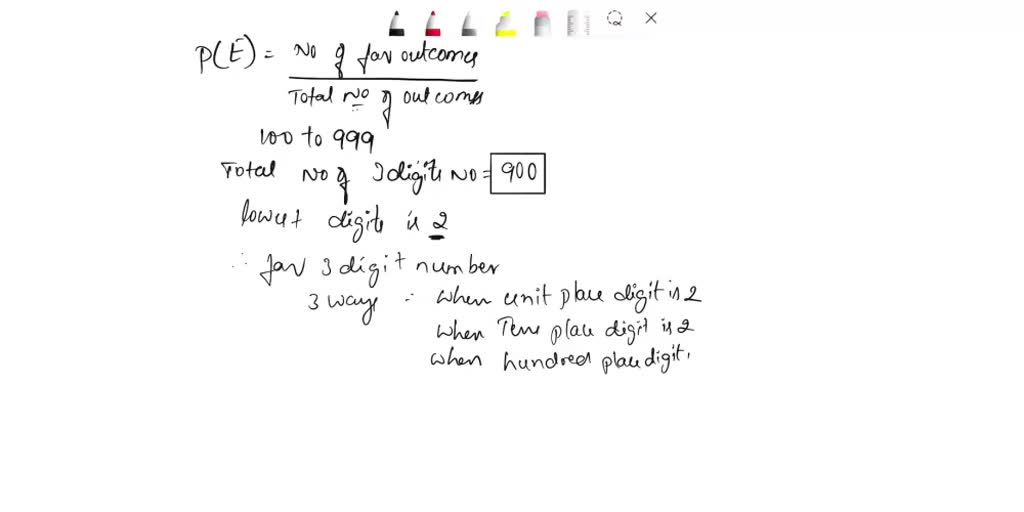 P(E) = No of fav outcomes
Total No of outcomes
100 to 999
Total No of 3 digits No = 900
lowest digits is 2
∴ fav 3 digit number
3 ways :- when unit place digit is 2
when Tens place digit is 2
when hundred place digit,